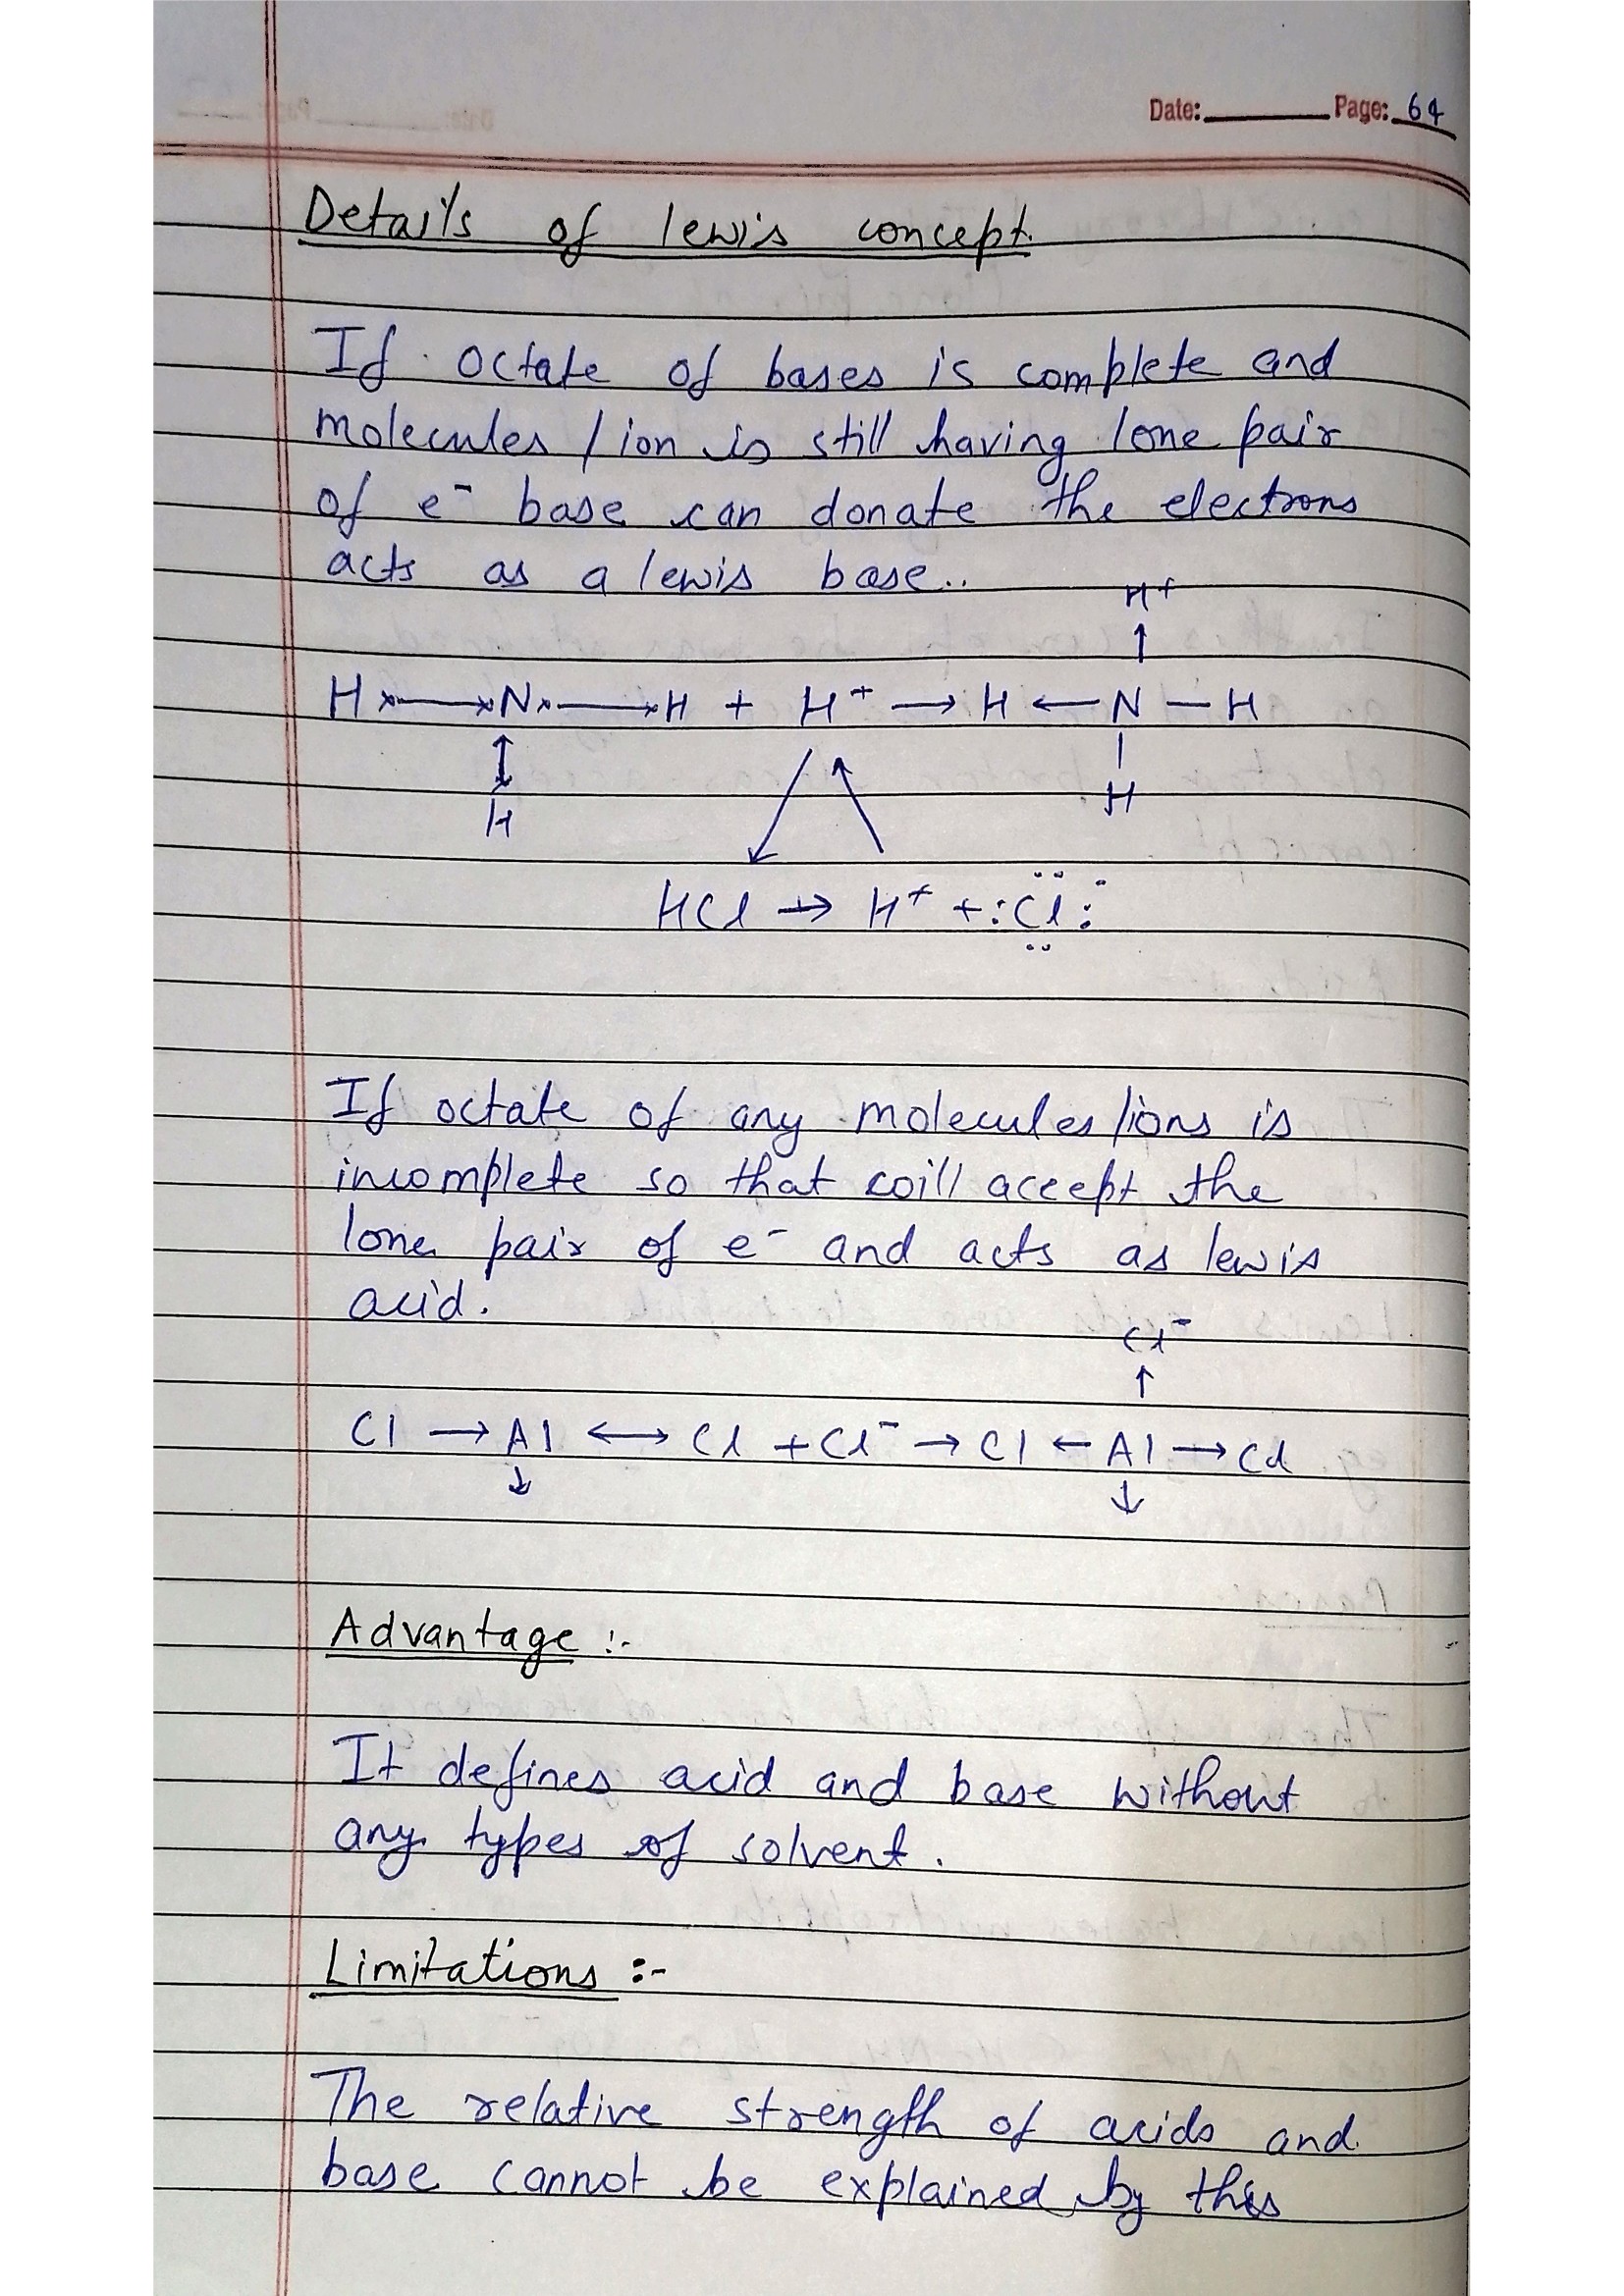 Date: Page: 64
Details of lewis concept.
If octate of bases is complete and
molecules / ion is still having lone pair
of e⁻ base can donate the electrons
acts as a lewis base..
H⁺
↑
H ×—×N×—×H + H⁺ → H ← N — H
↕ |
H H
HCl → H⁺ + :Cl:⁻
If octate of any molecules/ions is
incomplete so that coill accept the
lone pair of e⁻ and acts as lewis
acid.
Cl⁻
↑
Cl → Al ↔ Cl + Cl⁻ → Cl ← Al → Cl
↓ ↓
Advantage :-
It defines acid and base without
any types of solvent.
Limitations :-
The relative strength of acids and
base cannot be explained by this